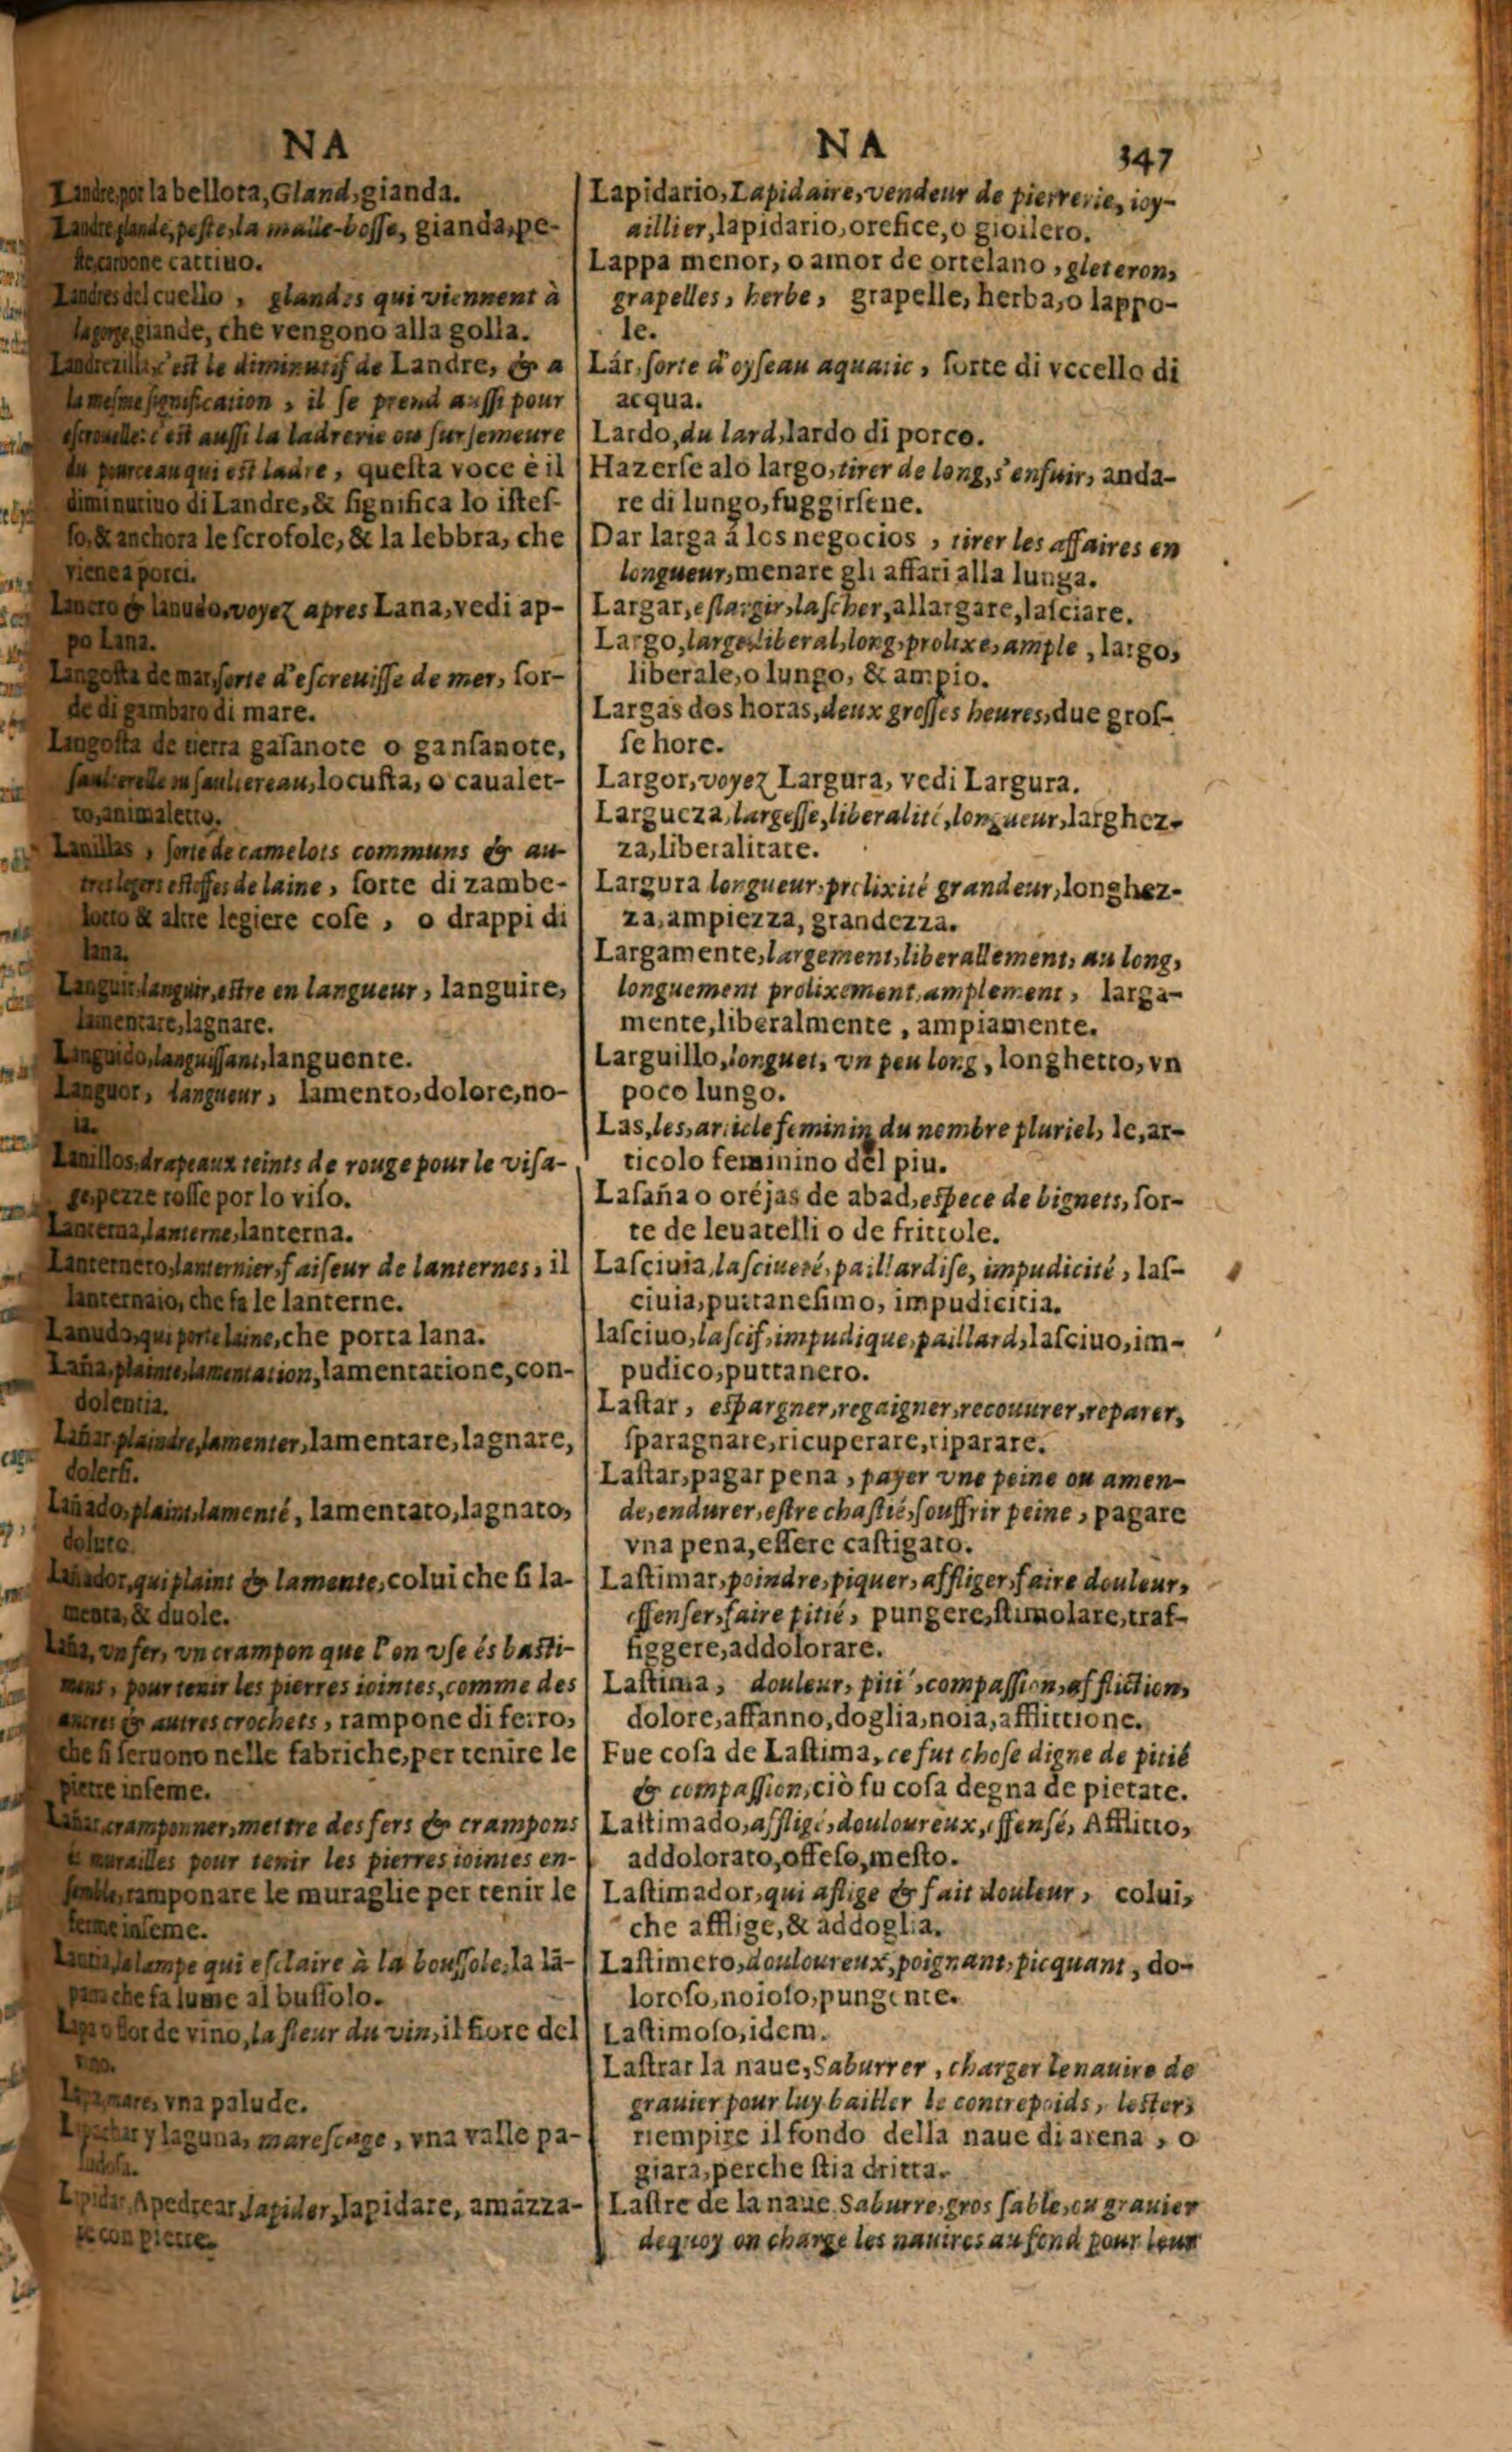 NA
Landre, por la bellota, Gland, gianda.
Landre glande, peste, la malle-bosse, gianda, pe-
ste, carbone cattiuo.
Landres del cuello, glandes qui viennent à
la gorge, giande, che vengono alla golla.
Landrezilla, c'est le diminutif de Landre, & a
la mesme signification, il se prend aussi pour
escrouelle: c'est aussi la ladrerie ou sursemeure
du pourceau qui est ladre, questa voce è il
diminutiuo di Landre, & significa lo istes-
so, & anchora le scrofole, & la lebbra, che
viene a porci.
Lanero & lanudo, voyez apres Lana, vedi ap-
po Lana.
Langosta de mar, sorte d'escreuisse de mer, sor-
de di gambaro di mare.
Langosta de tierra gasanote o gansanote,
sauterelle ou saultereau, locusta, o caualet-
to, animaletto.
Lanillas, sorte de camelots communs & au-
tres legers estoffes de laine, sorte di zambe-
lotto & altre legiere cose, o drappi di
lana.
Languir languir, estre en langueur, languire,
lamentare, lagnare.
Languido, languissant, languente.
Languor, langueur, lamento, dolore, no-
ia.
Lanillos, drapeaux teints de rouge pour le visa-
ge, pezze rosse por lo viso.
Lanterna, lanterne, lanterna.
Lanternero, lanternier, faiseur de lanternes, il
lanternaio, che fa le lanterne.
Lanudo, qui porte laine, che porta lana.
Laña, plainte, lamentation, lamentatione, con-
dolentia.
Lañar plaindre, lamenter, lamentare, lagnare,
dolersi.
Lañado, plaint, lamenté, lamentato, lagnato,
doluto.
Lañador, qui plaint & lamente, colui che si la-
menta, & duole.
Laña, vn fer, vn crampon que l'on vse és basti-
mens, pour tenir les pierres iointes, comme des
ancres & autres crochets, rampone di ferro,
che si seruono nelle fabriche, per tenire le
pietre inseme.
Lañar, cramponner, mettre des fers & crampons
és murailles pour tenir les pierres iointes en-
semble, ramponare le muraglie per tenir le
ferme inseme.
Lantia, la lampe qui esclaire à la boussole, la lā-
pana che fa lume al bussolo.
Lapa o flor de vino, la fleur du vin, il fiore del
vino.
mare, vna palude.
y laguna, marescage, vna valle pa-
ludosa.
Lapidar Apedrear, lapider, lapidare, amázza-
re con pietre.
NA
347
Lapidario, Lapidaire, vendeur de pierrerie, ioy-
aillier, lapidario, orefice, o gioilero.
Lappa menor, o amor de ortelano, gleteron,
grapelles, herbe, grapelle, herba, o lappo-
le.
Lár, sorte d'oyseau aquatic, sorte di vccello di
acqua.
Lardo, du lard, lardo di porco.
Hazerse alo largo, tirer de long, s'enfuir, anda-
re di lungo, fuggirsene.
Dar larga á los negocios, tirer les affaires en
longueur, menare gli affari alla lunga.
Largar, eslargir, lascher, allargare, lasciare.
Largo, large, liberal, long, prolixe, ample, largo,
liberale, o lungo, & ampio.
Largas dos horas, deux grosses heures, due gros-
se hore.
Largor, voyez Largura, vedi Largura.
Largueza, largesse, liberalité, longueur, larghez-
za, liberalitate.
Largura longueur, prolixité grandeur, longhez-
za, ampiezza, grandezza.
Largamente, largement, liberallement, au long,
longuement prolixement, amplement, larga-
mente, liberalmente, ampiamente.
Larguillo, longuet, vn peu long, longhetto, vn
poco lungo.
Las, les, article feminin du nombre pluriel, le, ar-
ticolo feminino del piu.
Lasaña o oréjas de abad, espece de bignets, sor-
te de leuatelli o de frittole.
Lasciuia, lasciueté, paillardise, impudicité, las-
ciuia, puttanesimo, impudicitia.
lasciuo, lascif, impudique, paillard, lasciuo, im-
pudico, puttanero.
Lastar, espargner, regaigner, recouurer, reparer,
sparagnare, ricuperare, riparare.
Lastar, pagar pena, payer vne peine ou amen-
de, endurer, estre chastié, souffrir peine, pagare
vna pena, essere castigato.
Lastimar, poindre, piquer, affliger, faire douleur,
offenser, faire pitié, pungere, stimolare, traf-
figgere, addolorare.
Lastima, douleur, pitié, compassion, affliction,
dolore, affanno, doglia, noia, afflittione.
Fue cosa de Lastima, ce fut chose digne de pitié
& compassion, ciò fu cosa degna de pietate.
Lastimado, affligé, douloureux, offensé, Afflitto,
addolorato, offeso, mesto.
Lastimador, qui aflige & fait douleur, colui,
che afflige, & addoglia.
Lastimero, douloureux, poignant, picquant, do-
loroso, noioso, pungente.
Lastimoso, idem.
Lastrar la naue, Saburrer, charger le nauire de
grauier pour luy bailler le contrepoids, lester,
riempire il fondo della naue di arena, o
giara, perche stia dritta.
Lastre de la naue, Saburre, gros sable, ou grauier
dequoy on charge les nauires au fond pour leur